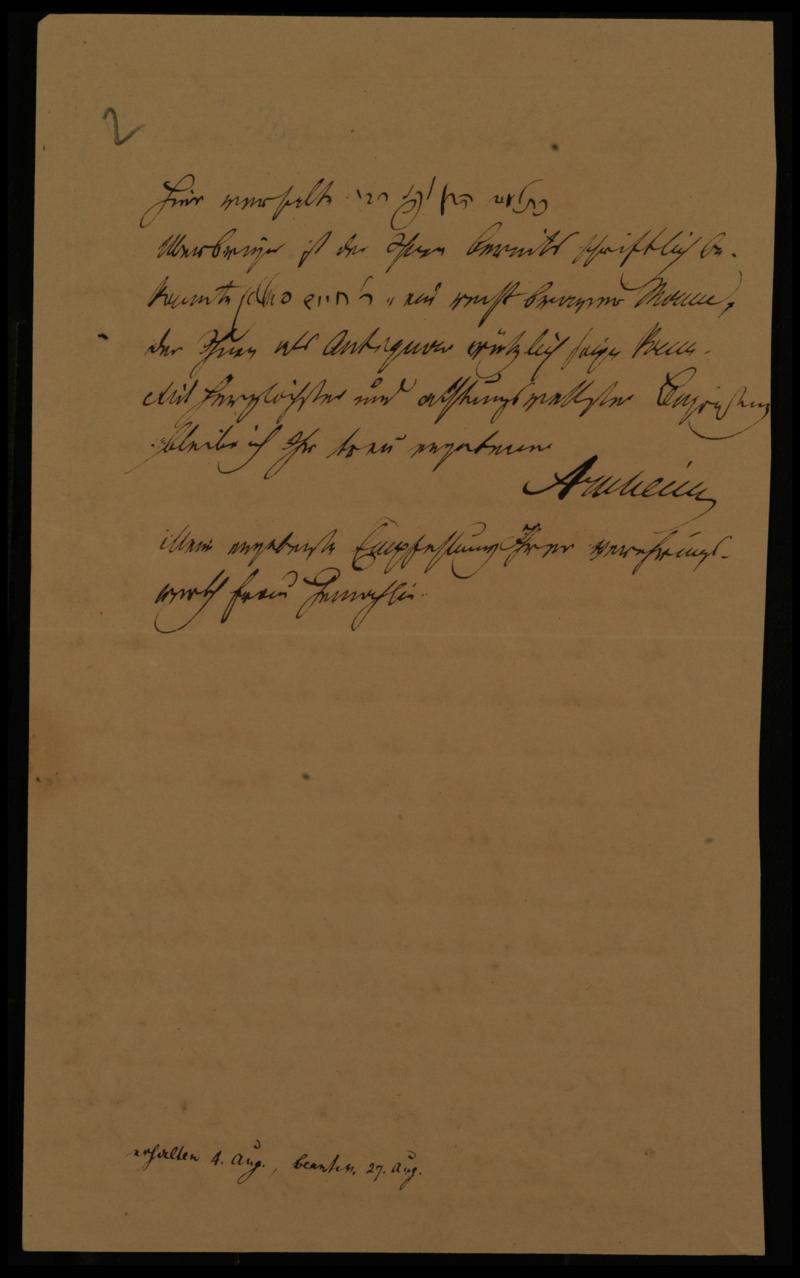 2
Hier
Ueberbringer ist der Ihnen bereits schriftlich be-
kannte ר׳ חיים, ein recht braver Mann,
der Ihnen als Antiquar nützlich seyn kann.
Mit herzlichster und achtungsvollster
bleibe ich Ihr treu ergebener
Arnheim
Meine ergebenste Empfehlung Ihrer verehrungs-
werth Frau Gemahlin.
erhalten 4. Aug., beantw. 27. Aug.